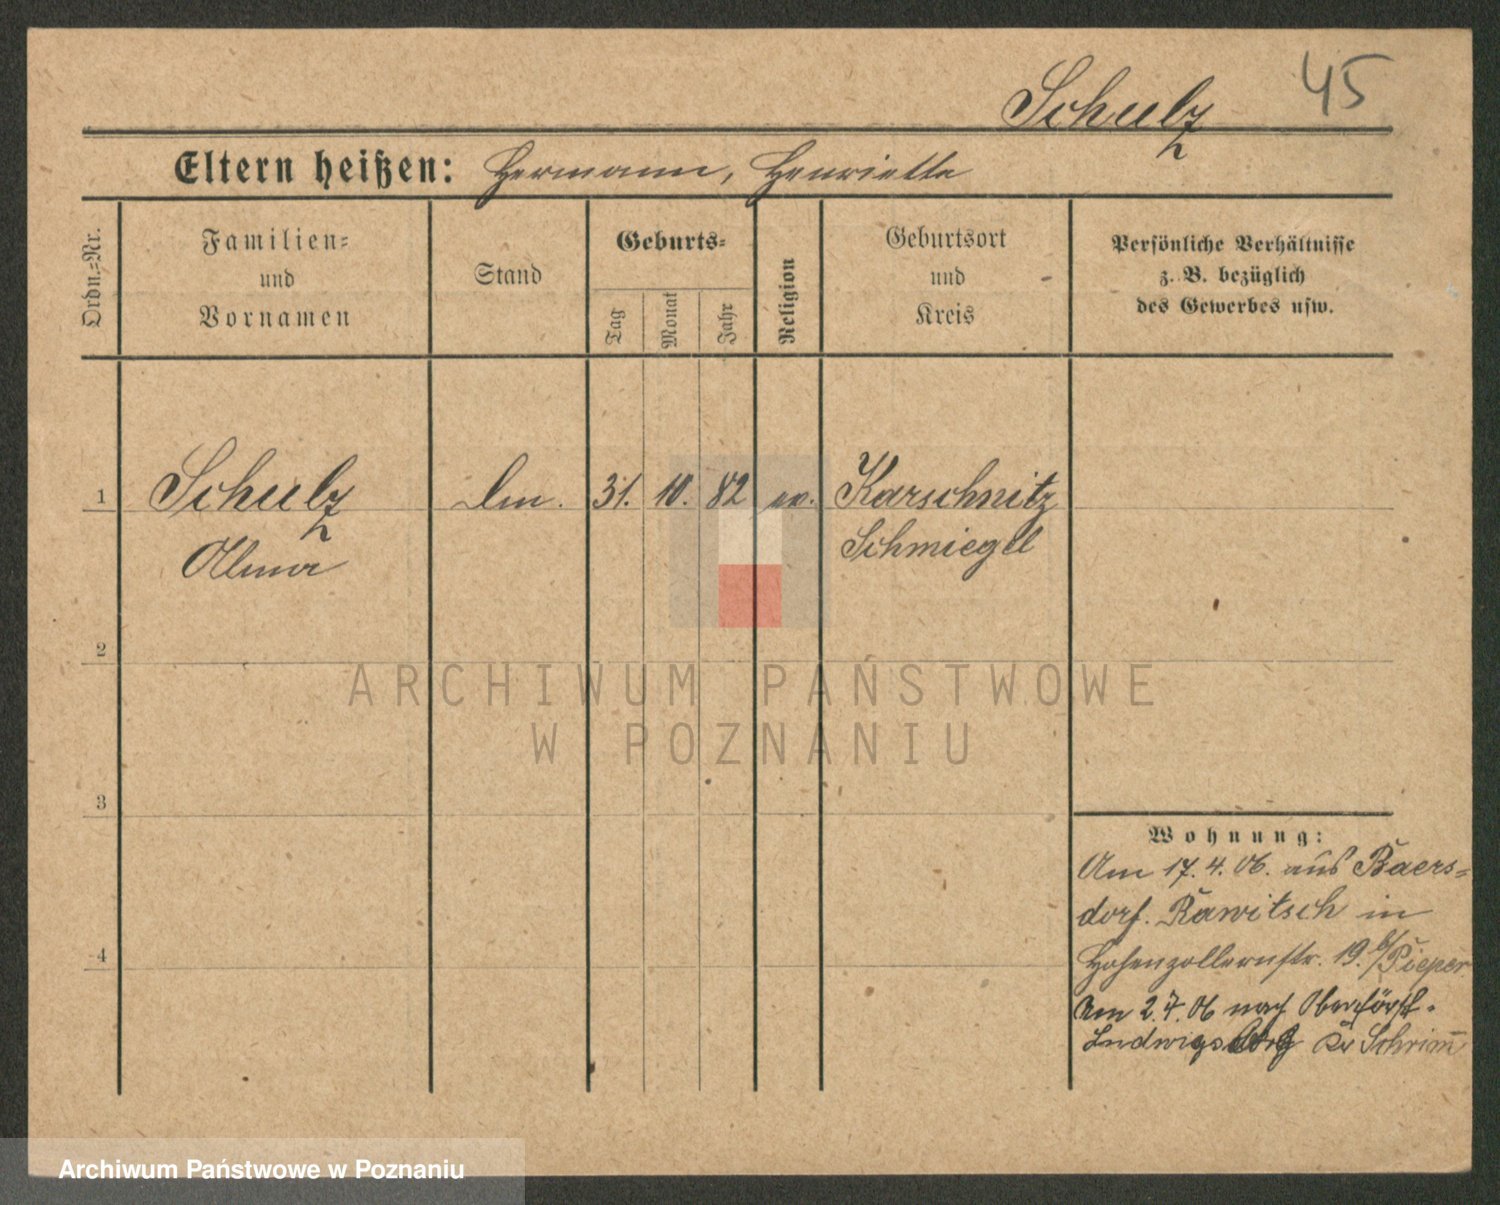 Schulz
45
Eltern heißen: Hermann, Henriette
Ordn.=Nr.
Familien=
und
Vornamen
Stand
Geburts=
Tag
Monat
Jahr
Religion
Geburtsort
und
Kreis
Persönliche Verhältnisse
z. B. bezüglich
des Gewerbes usw.
1 Schulz 31. 10. 82 ev. Karschnitz
Alma Schmiegel
2
3
4
Wohnung:
Am 17.4.06. aus Baers=
dorf. Rawitsch in
Hohenzollernstr. 19. b/Pieper
Am 2.7.06 nach Oberförst.
Ludwigsberg Kr Schrim̅
ARCHIWUM PAŃSTWOWE
W POZNANIU
Archiwum Państwowe w Poznaniu